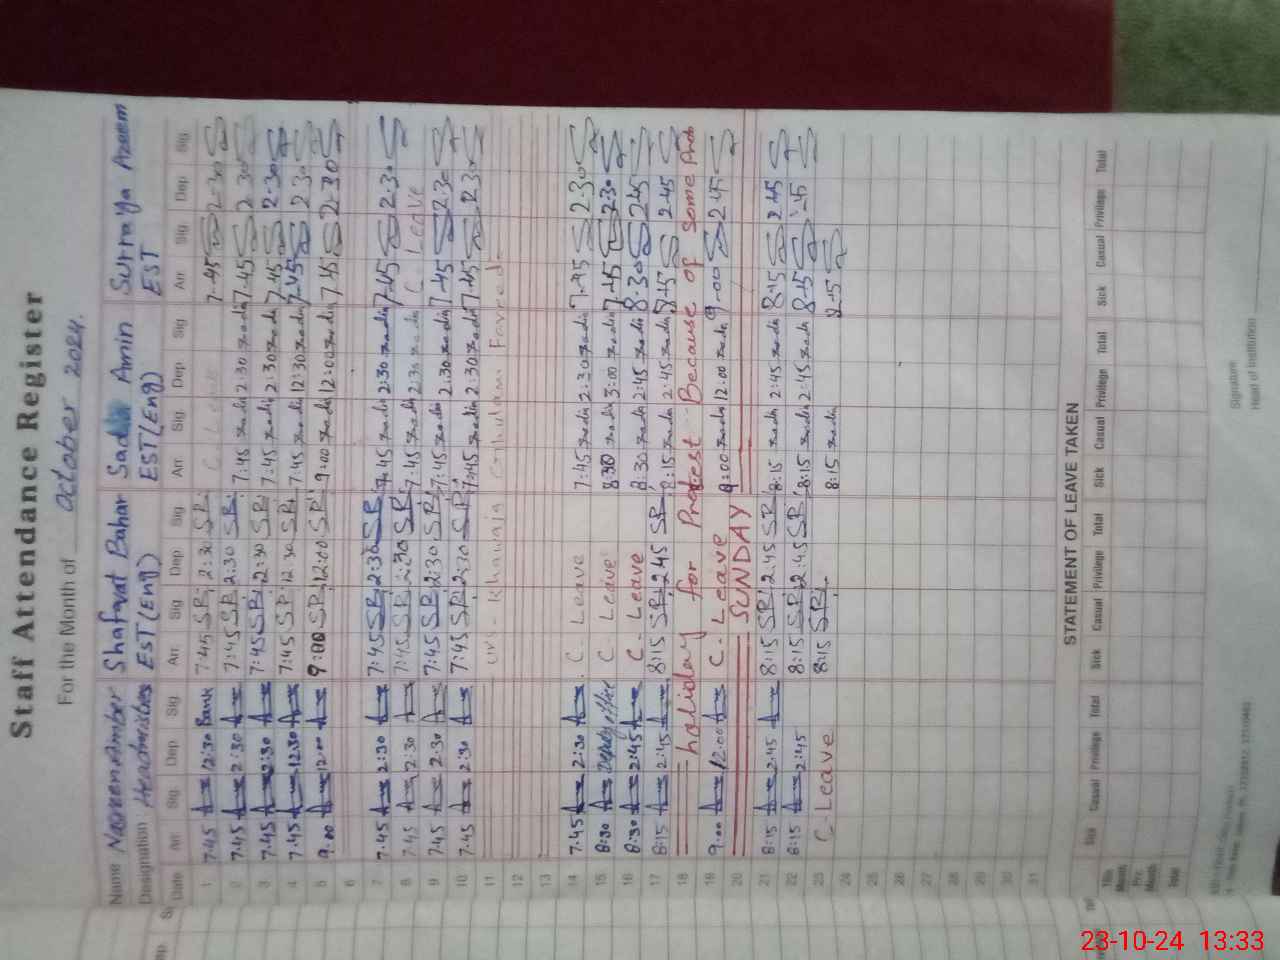 Staff Attendance Register
For the Month of October 2024.
Name Shafayat Bahar Sadia Amin Surraya Azeem
Designation Headmistress EST(Eng) EST(Eng) EST
Date Arr Sig Dep Sig Arr Sig Dep Sig Arr Sig Dep Sig Arr Sig Dep Sig
1 7.45 12:30 Bank 7:45 SR 2:30 SR C. Leave 7.45 2.30
2 7.45 2:30 7:45 SR 2:30 SR 7:45 Sadia 2:30 Sadia 7.45 2.30
3 7.45 2:30 7:45 SR 12:30 SR 7:45 Sadia 2:30 Sadia 7.45 2.30
4 7.45 12.30 7:45 SR 12:30 SR 7:45 Sadia 12:30 Sadia 7.45 2.30
5 9.00 12.00 9:00 SR 12:00 SR 9:00 Sadia 12:00 Sadia 7.45 2.30
6
7 7.45 2:30 7:45 SR 2:30 SR 7:45 Sadia 2:30 Sadia 7.45 2.30
8 7.45 2:30 7:45 SR 2:30 SR 7:45 Sadia 2:30 Sadia C. Leave
9 7.45 2.30 7:45 SR 2:30 SR 7:45 Sadia 2:30 Sadia 7.45 2.30
10 7.45 2:30 7:45 SR 2:30 SR 7:45 Sadia 2:30 Sadia 7.45 2.30
11 Khawaja Ghulam Fareed
12
13
14 7.45 2:30 C. Leave 7:45 Sadia 2:30 Sadia 7.45 2.30
15 8:30 Deputy office C. Leave 8:30 Sadia 3:00 Sadia 7.45 2.30
16 8:30 2:45 C. Leave 8:30 Sadia 2:45 Sadia 8.30 2.45
17 8:15 2:45 8:15 SR 2:45 SR 8:15 Sadia 2:45 Sadia 2.45
18 holiday for Protest Because of Some Prob
19 9.00 12.00 C. Leave 9:00 Sadia 12:00 Sadia 9.00 2.45
20 SUNDAY
21 8:15 2:45 8:15 SR 2:45 SR 8:15 Sadia 2:45 Sadia 8.15 2.45
22 8:15 2:45 8:15 SR 2:45 SR 8:15 Sadia 2:45 Sadia 8.15
23 C. Leave 8:15 SR 8:15 Sadia 8.15
24
25
26
27
28
29
30
31
STATEMENT OF LEAVE TAKEN
Sick Casual Privilege Total Sick Casual Privilege Total Sick Casual Privilege Total Sick Casual Privilege Total
This Month
Pre. Month
Total
Signature
Head of Institution
23-10-24 13:33